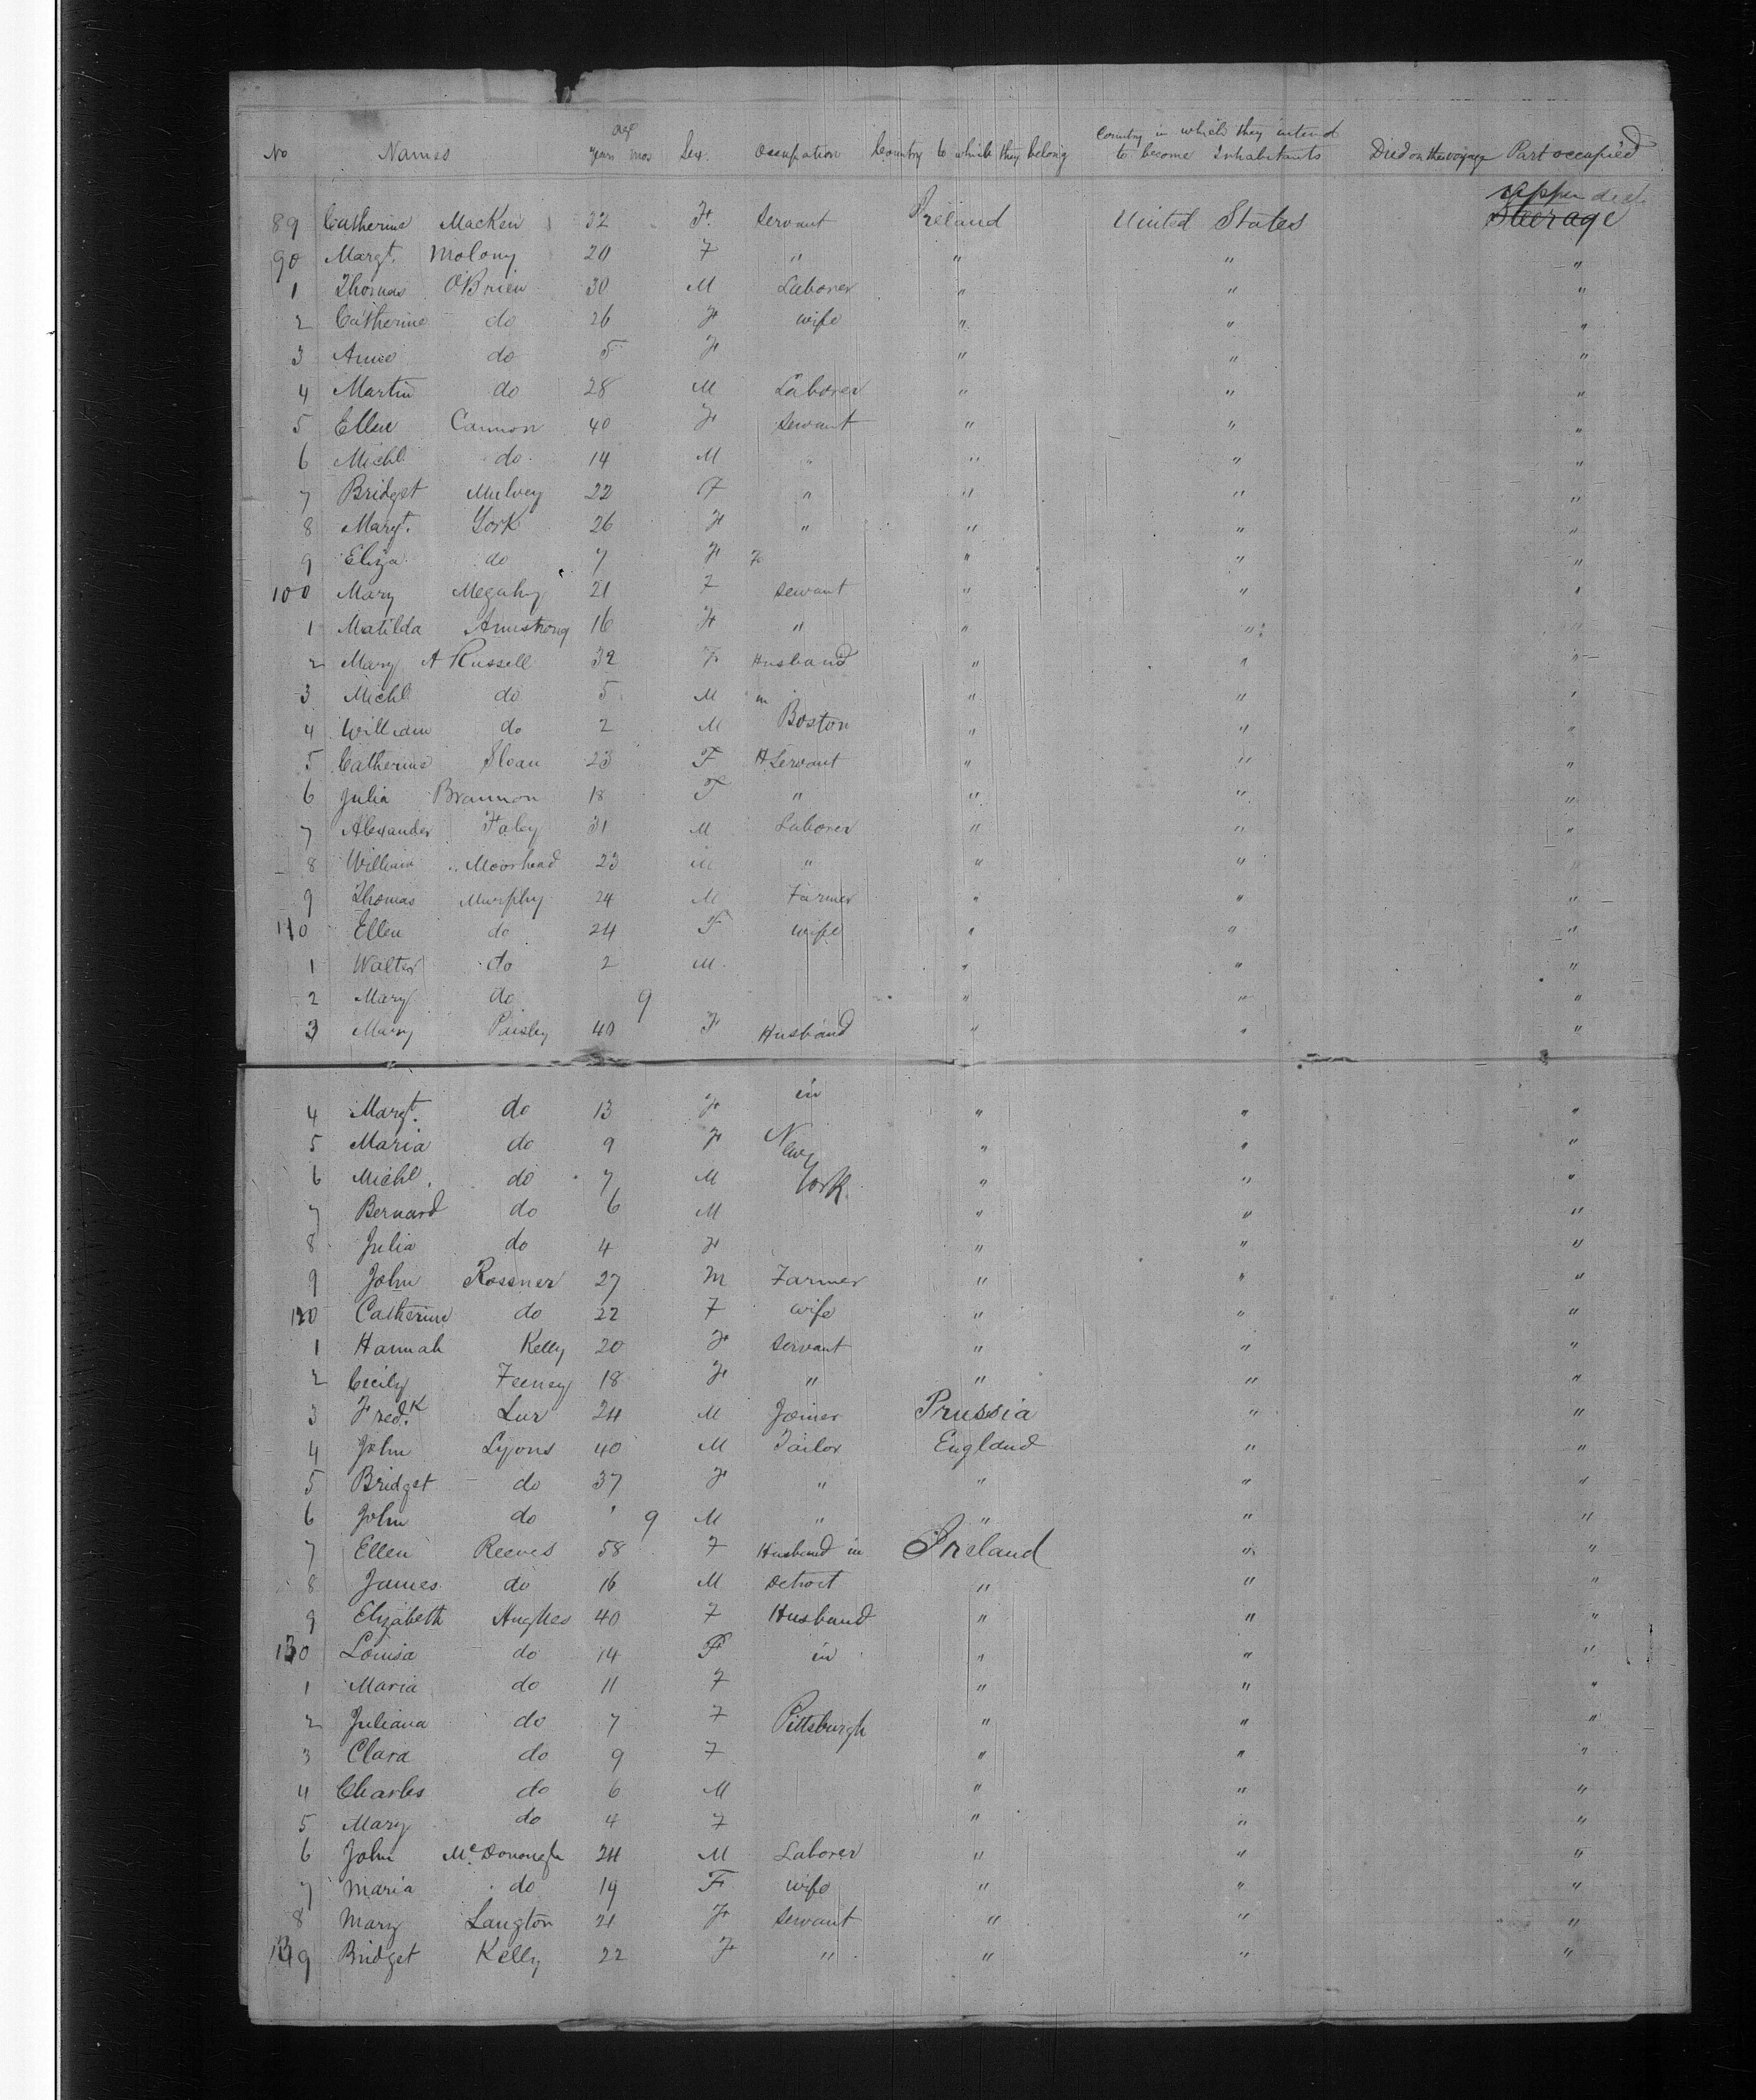 No Names Age years mos Sex. Occupation Country to which they belong Country in which they intend to become Inhabitants Died on the voyage Part occupied
upper deck
89 Catherine Macken 32 F. Servant Ireland United States Steerage
90 Margt. Molony 20 F " " " "
1 Thomas O'Brien 30 M Laborer " " "
2 Catherine do 26 F wife " " "
3 Anne do 5 F " " "
4 Martin do 28 M Laborer " " "
5 Ellen Cannon 40 F Servant " " "
6 Michl. do 14 M " " " "
7 Bridget Mulvey 22 F " " " "
8 Margt. York 26 F " " " "
9 Eliza do 7 F " " "
100 Mary Megahy 21 F Servant " " "
1 Matilda Armstrong 16 F " " " "
2 Mary A Russell 32 F Husband " " "
3 Michl do 5 M in " " "
4 William do 2 M Boston " " "
5 Catherine Sloan 23 F H Servant " " "
6 Julia Brannon 18 F " " " "
7 Alexander Faley 31 M Laborer " " "
8 William Moorhead 23 M " " " "
9 Thomas Murphy 24 M Farmer " " "
110 Ellen do 24 F wife " " "
1 Walter do 2 M " " "
2 Mary do 9 " " "
3 Mary Paisley 40 F Husband " " "
4 Margt. do 13 F in " " "
5 Maria do 9 F New " " "
6 Michl. do 7 M York " " "
7 Bernard do 6 M " " "
8 Julia do 4 F " " "
9 John Rossner 27 M Farmer " " "
120 Catherine do 22 F wife " " "
1 Hannah Kelly 20 F Servant " " "
2 Cecily Feeney 18 F " " " "
3 Fred.k Lur 24 M Joiner Prussia " "
4 John Lyons 40 M Tailor England " "
5 Bridget do 37 F " " " "
6 John do " 9 M " " " "
7 Ellen Reeves 58 F Husband in Ireland " "
8 James do 16 M Detroit " " "
9 Elizabeth Hughes 40 F Husband " " "
130 Louisa do 14 F in " " "
1 Maria do 11 F " " "
2 Juliana do 7 F Pittsburgh " " "
3 Clara do 9 F " " "
4 Charles do 6 M " " "
5 Mary do 4 F " " "
6 John McDonough 24 M Laborer " " "
7 Maria do 19 F wife " " "
8 Mary Langton 21 F Servant " " "
139 Bridget Kelly 22 F " " " "